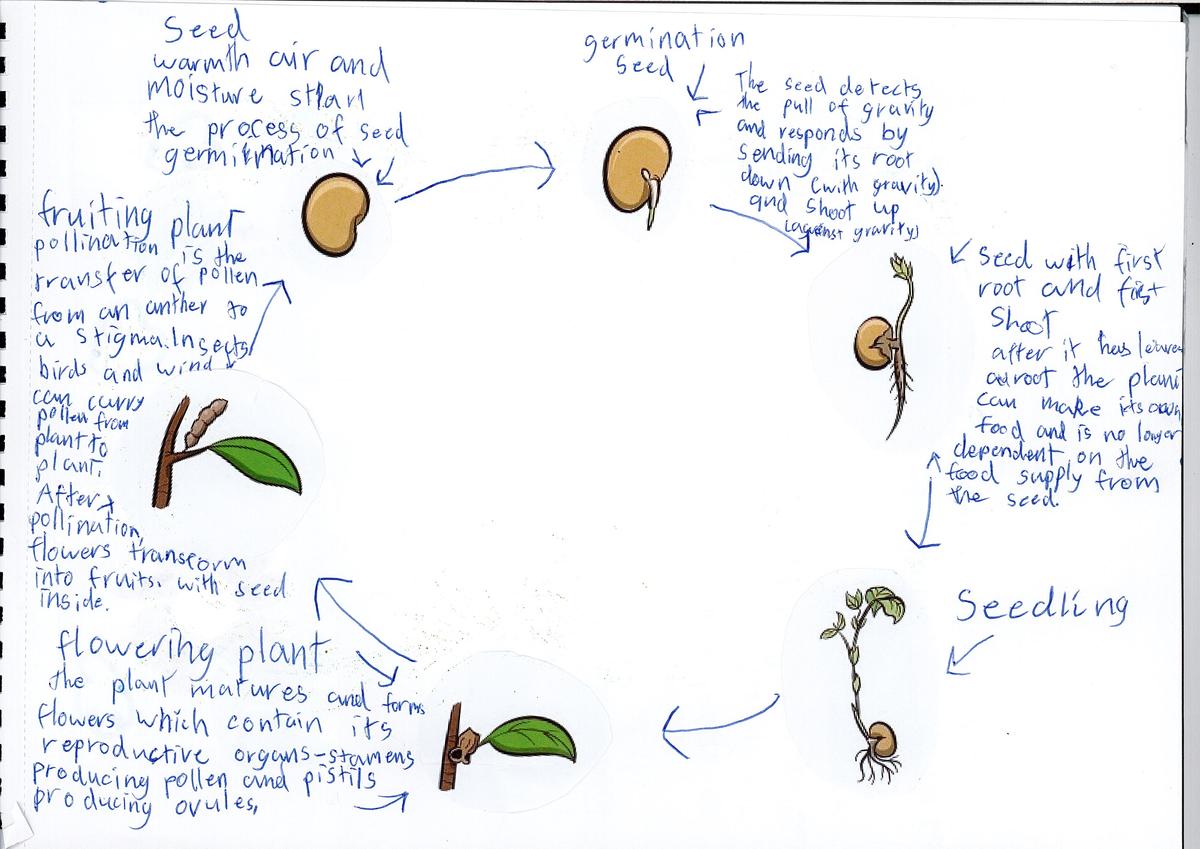 Seed
warmth air and
moisture start
the process of seed
germination
germination
seed
The seed detects
the pull of gravity
and responds by
sending its root
down (with gravity).
and shoot up
(against gravity)
seed with first
root and first
shoot
after it has leaves
and root the plant
can make its own
food and is no longer
dependent on the
food supply from
the seed.
Seedling
flowering plant
the plant matures and forms
flowers which contain its
reproductive organs-stamens
producing pollen and pistils
producing ovules,
fruiting plant
pollination is the
transfer of pollen
from an anther to
a stigma. Insects,
birds and wind
can carry
pollen from
plant to
plant.
After
pollination,
flowers transform
into fruits. with seed
inside.